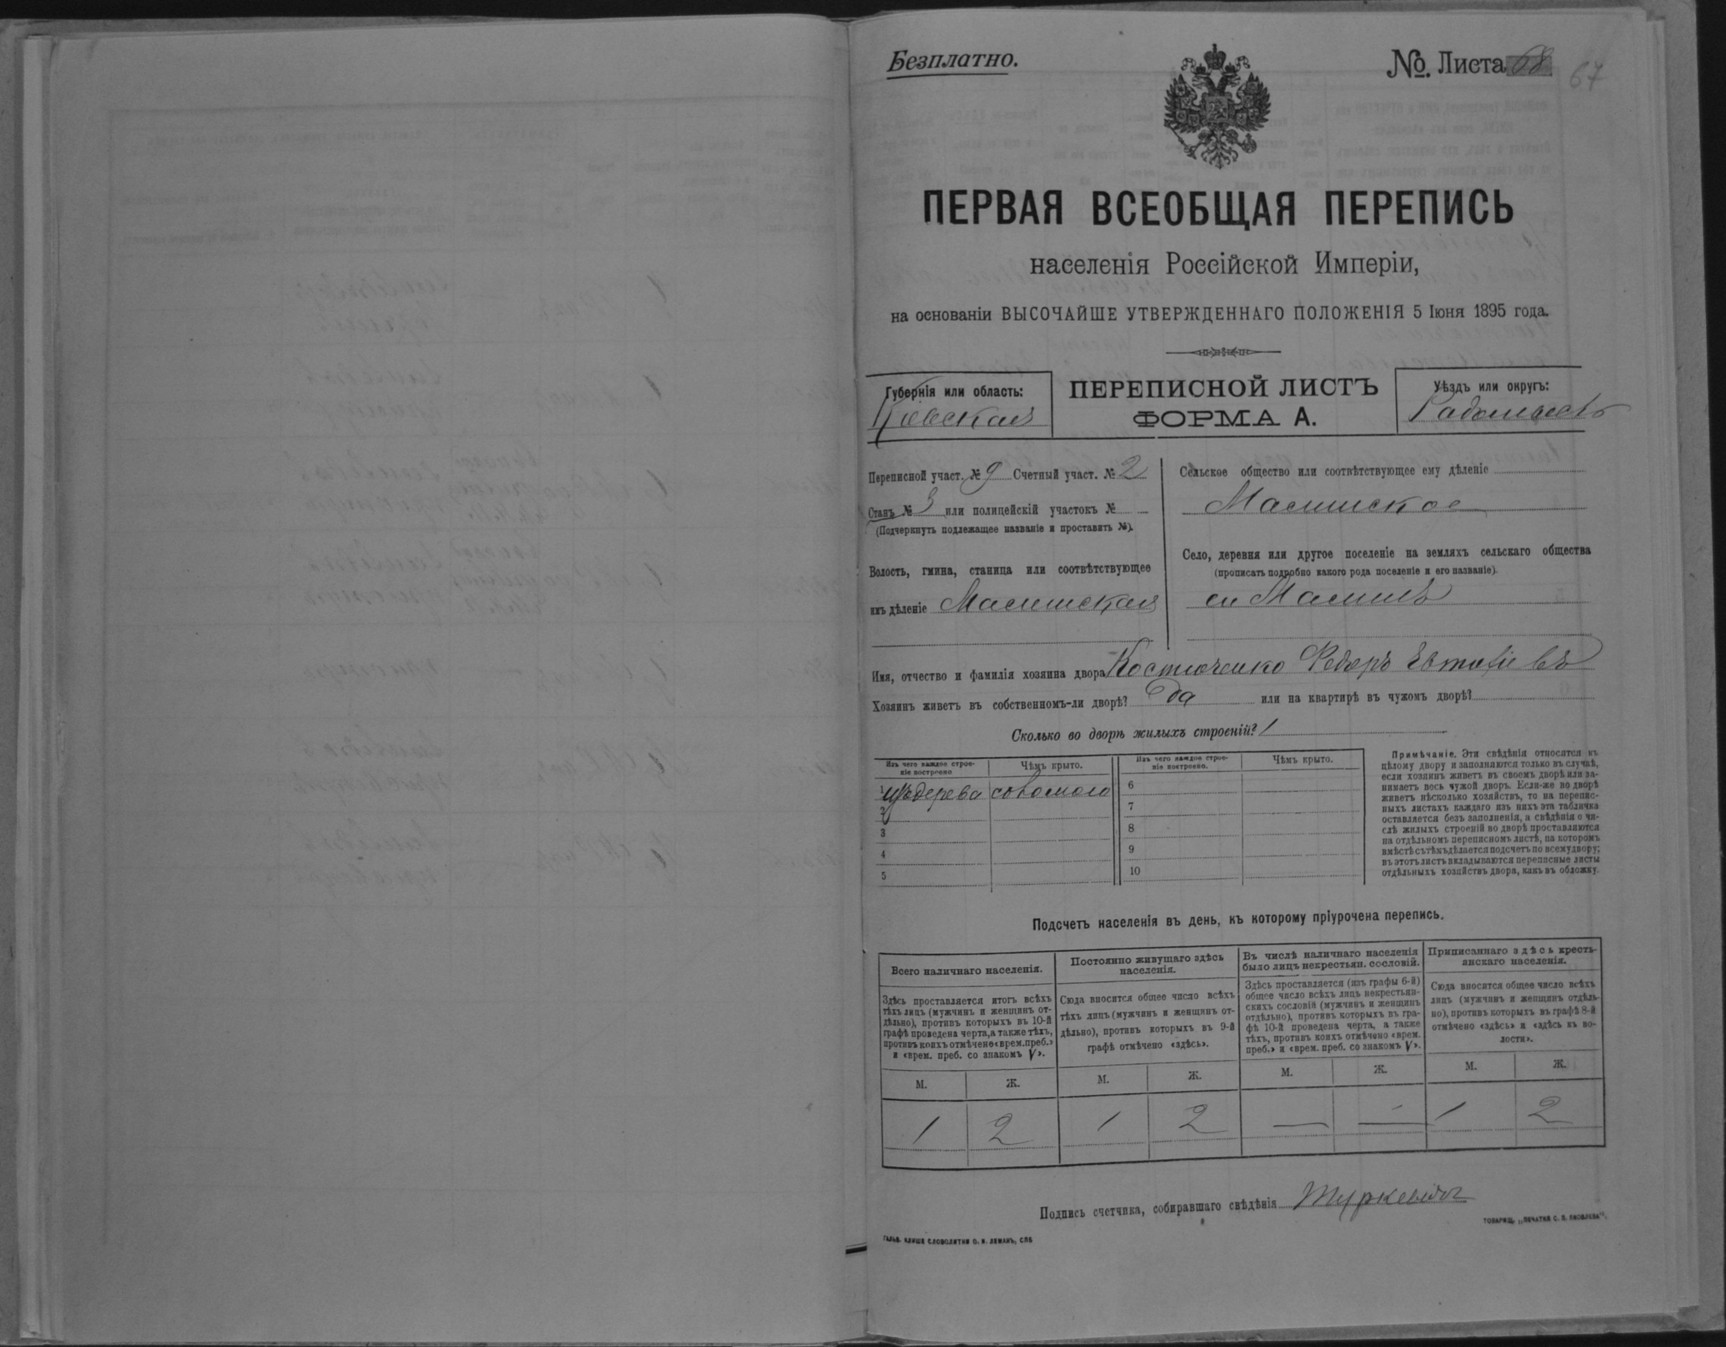 Безплатно.
№. Листа 68 67
ПЕРВАЯ ВСЕОБЩАЯ ПЕРЕПИСЬ
населенія Россійской Имперіи,
на основаніи ВЫСОЧАЙШЕ УТВЕРЖДЕННАГО ПОЛОЖЕНІЯ 5 Іюня 1895 года.
Губернія или область:
Кіевская
ПЕРЕПИСНОЙ ЛИСТЪ
ФОРМА А.
Уѣздъ или округъ:
Переписной участ. № 9 Счетный участ. № 2
Станъ № 3 или полицейскій участокъ № —
(Подчеркнуть подлежащее названіе и проставить №).
Волость, гмина, станица или соотвѣтствующее
имъ дѣленіе Малинская
Сельское общество или соотвѣтствующее ему дѣленіе
Малинское
Село, деревня или другое поселеніе на земляхъ сельскаго общества
(прописать подробно какого рода поселеніе и его названіе).
Малинъ
Имя, отчество и фамилія хозяина двора Костюченко Федоръ Евтофіевъ
Хозяинъ живетъ въ собственномъ-ли дворѣ? Да или на квартирѣ въ чужомъ дворѣ?
Сколько во дворѣ жилыхъ строеній? 1
Изъ чего каждое строе-
ніе построено
Чѣмъ крыто.
1 изъ дерева соломою
2
3
4
5
Изъ чего каждое строе-
ніе построено.
Чѣмъ крыто.
6
7
8
9
10
Примѣчаніе. Эти свѣдѣнія относятся къ
цѣлому двору и заполняются только въ случаѣ,
если хозяинъ живетъ въ своемъ дворѣ или за-
нимаетъ весь чужой дворъ. Если-же во дворѣ
живетъ нѣсколько хозяйствъ, то на перепис-
ныхъ листахъ каждаго изъ нихъ эта табличка
оставляется безъ заполненія, а свѣдѣнія о чи-
слѣ жилыхъ строеній во дворѣ проставляются
на отдѣльномъ переписномъ листѣ, на которомъ
вмѣстѣ съ тѣмъ дѣлается подсчетъ по всему двору;
въ этотъ листъ вкладываются переписные листы
отдѣльныхъ хозяйствъ двора, какъ въ обложку.
Подсчетъ населенія въ день, къ которому пріурочена перепись.
Всего наличнаго населенія.
Здѣсь проставляется итогъ всѣхъ
тѣхъ лицъ (мужчинъ и женщинъ от-
дѣльно), противъ которыхъ въ 10-й
графѣ проведена черта, а также тѣхъ,
противъ коихъ отмѣчено «врем. преб.»
и «врем. преб. со знакомъ V».
М. Ж.
1 2
Постоянно живущаго здѣсь
населенія.
Сюда вносится общее число всѣхъ
тѣхъ лицъ (мужчинъ и женщинъ от-
дѣльно), противъ которыхъ въ 9-й
графѣ отмѣчено «здѣсь».
М. Ж.
1 2
Въ числѣ наличнаго населенія
было лицъ некрестьян. сословій.
Здѣсь проставляется (изъ графы 6-й)
общее число всѣхъ лицъ некрестьян-
скихъ сословій (мужчинъ и женщинъ
отдѣльно), противъ которыхъ въ гра-
фѣ 10-й проведена черта, а также
тѣхъ, противъ коихъ отмѣчено «врем.
преб.» и «врем. преб. со знакомъ V».
М. Ж.
— —
Приписаннаго здѣсь кресть-
янскаго населенія.
Сюда вносится общее число всѣхъ
лицъ (мужчинъ и женщинъ отдѣль-
но), противъ которыхъ въ графѣ 8-й
отмѣчено «здѣсь» и «здѣсь въ во-
лости».
М. Ж.
1 2
Подпись счетчика, собиравшаго свѣдѣнія
ГАЛЬВ. КЛИШЕ СЛОВОЛИТНИ О. И. ЛЕМАНЪ, СПБ
ТОВАРИЩ. „ПЕЧАТНЯ С. П. ЯКОВЛЕВА“.